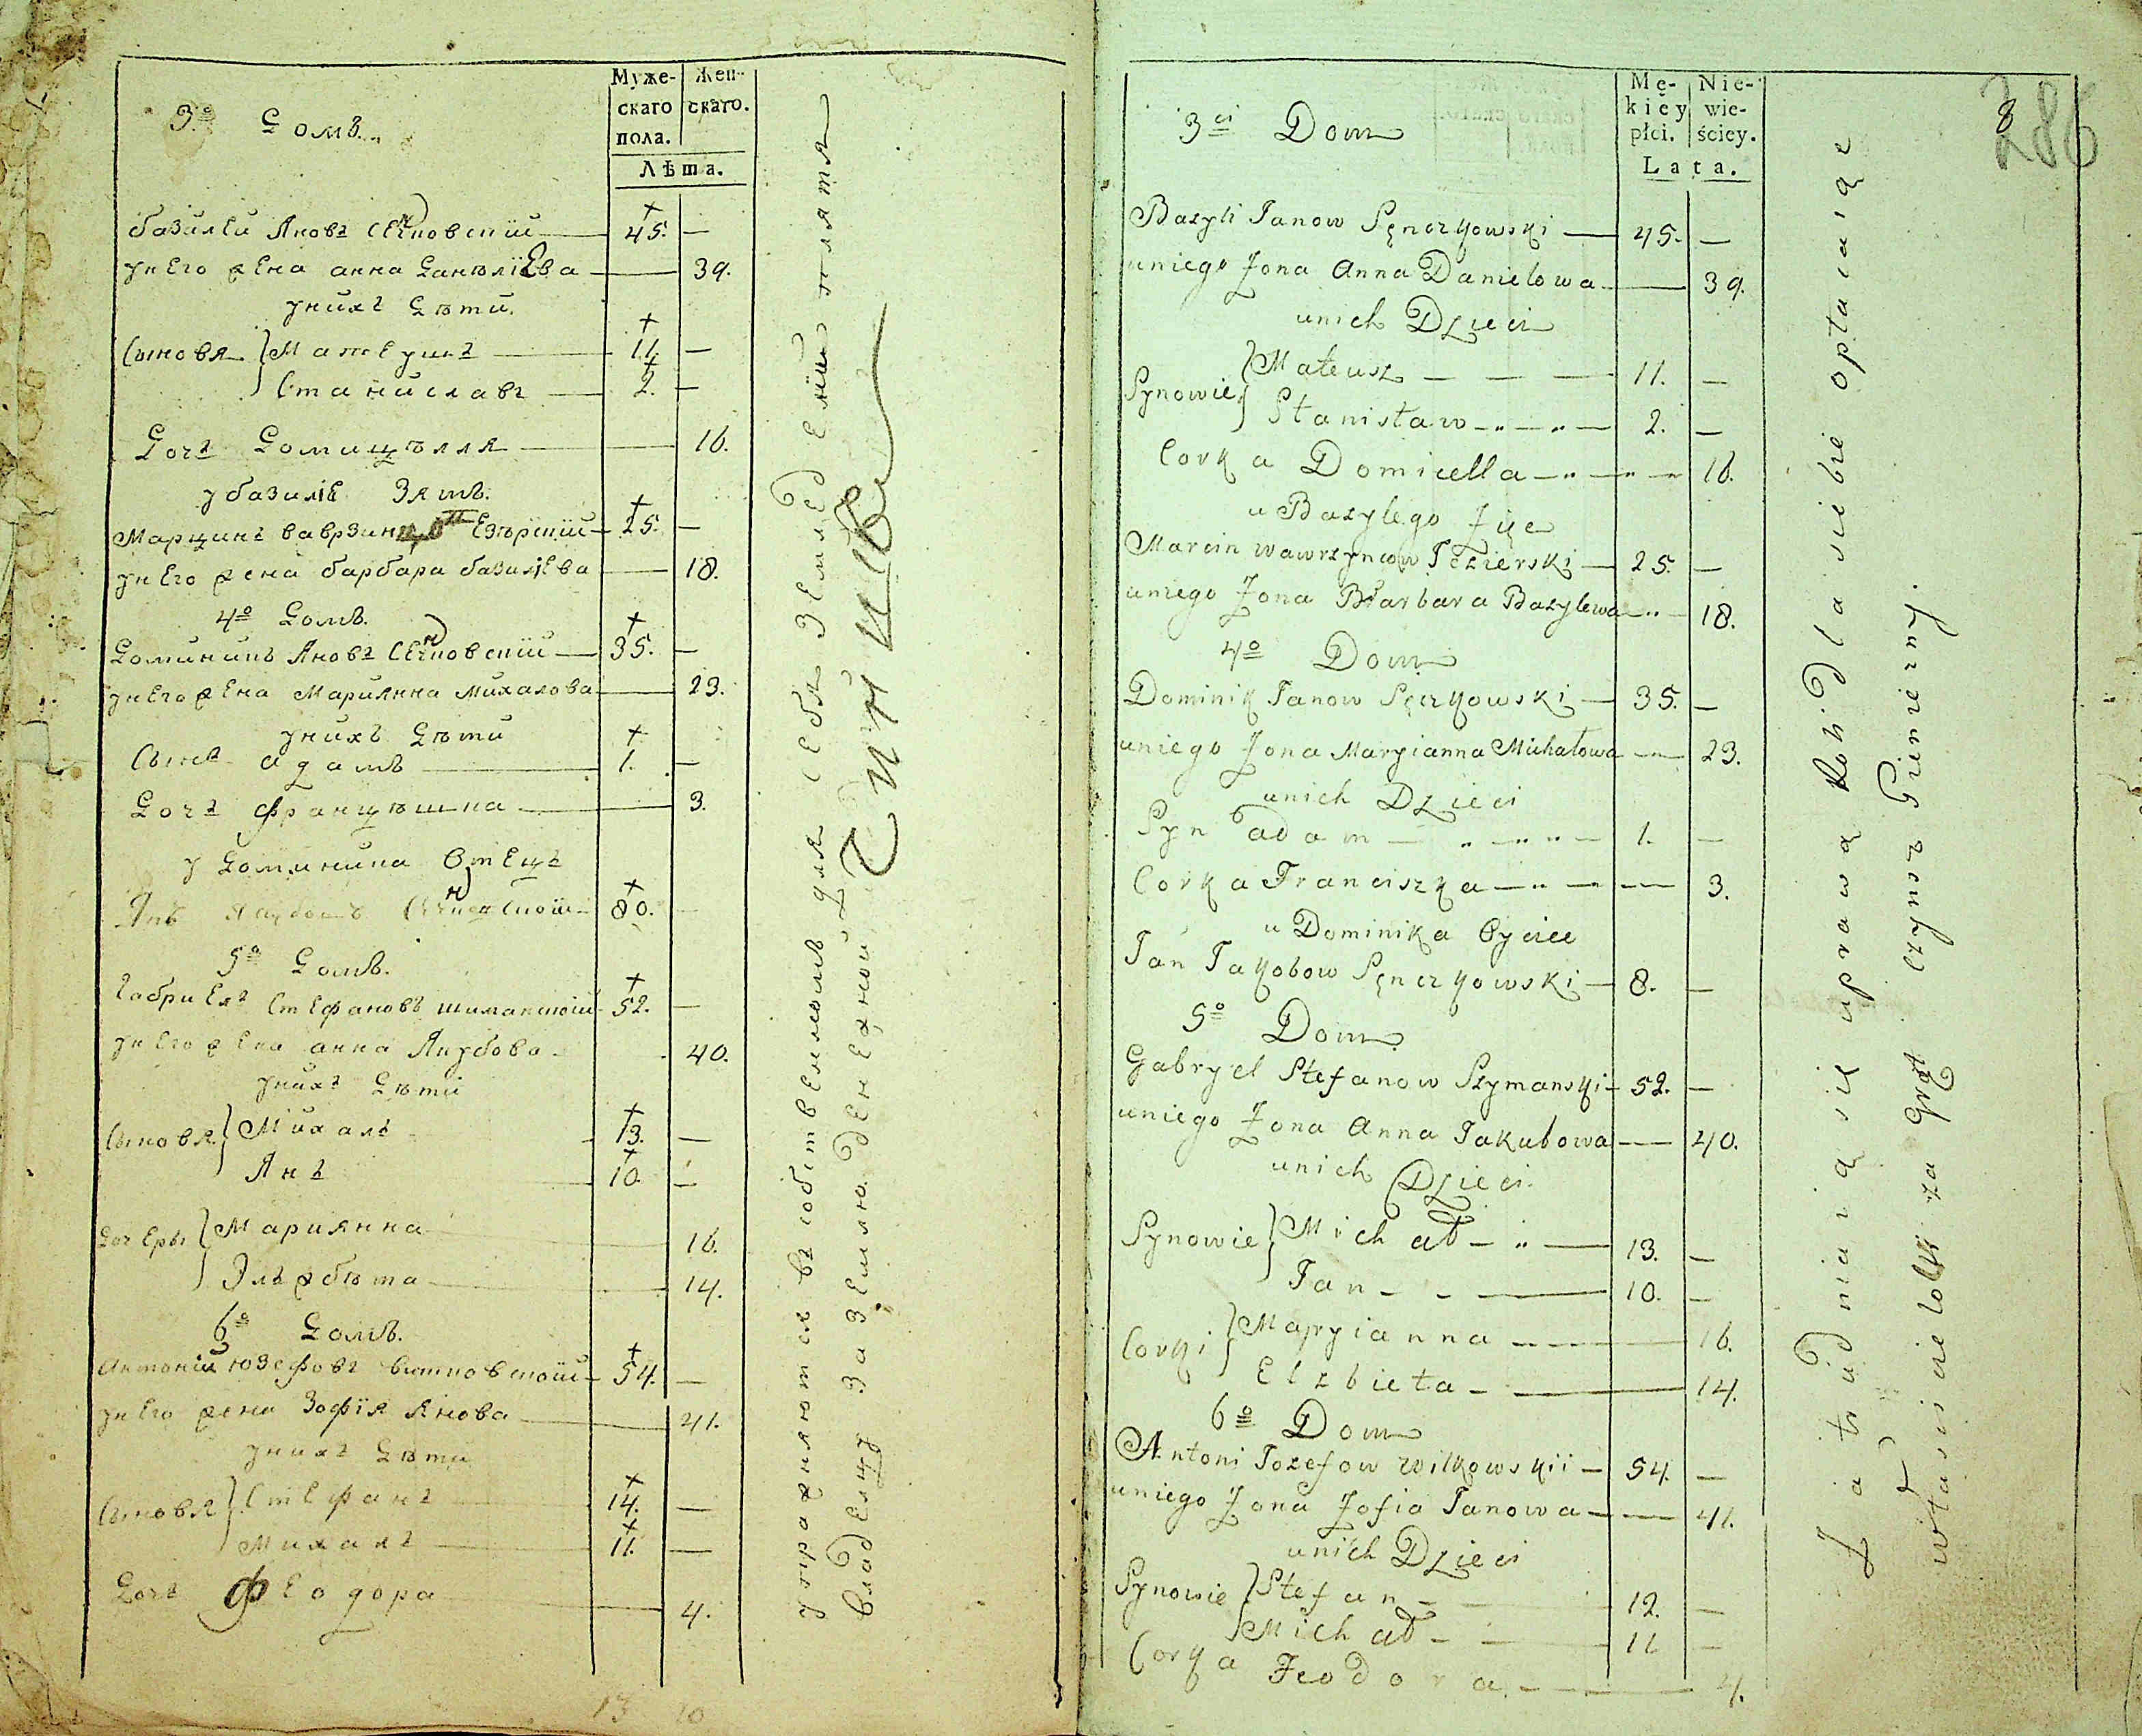 Муже-
скаго
пола.
Жен-
скаго.
Лѣта.
3º Домъ.
базилей Яновъ Сенчковскій 45. —
унего жена анна Даніелѣва — 39.
унихъ Дѣти.
Сыновя Матеушъ 11. —
Станиславъ 2. —
Дочь Домицѣлля — 16.
у базилія Зять.
Марцинъ ваврзинцовъ Езѣрскій 25. —
унего жена барбара базиліева — 18.
4º Домъ.
Доминикъ Яновъ Сенчковскій 35. —
унего жена Маріянна михалова — 23.
унихъ Дѣти
Сынъ адамъ 1. —
Дочь Францѣшка — 3.
у Доминика Отецъ
Янъ Якубовъ 80. —
5º Домъ.
Габриель Стефановъ шиманскій 52. —
унего жена анна Якубова 40.
унихъ Дѣти
Сыновя Михалъ 13. —
Янъ 10. —
Дочеры Мариянна 16.
Эльжбѣта 14.
6º Домъ.
Антоній юзефовъ витковскій 54. —
унего жена Зофія Янова 41.
унихъ Дѣти
Сыновя Стефанъ 14. —
Михалъ 11. —
Дочь Феодора 4.
13 10
упражняются въ собственномъ для себя земледеліи платя
владелцу за землю денежной чиншъ
286
8
Mę-
kięy
płci.
Nie-
wie-
ściey.
Lata.
3ci Dom
Bazyli Janow Sęnczkowski — 45. —
uniego Zona Anna Danielowa — 39.
unich Dzieci
Synowie Mateusz — — — 11. —
Stanisław — 2. —
Corka Domicella — 16.
u Bazylego Zięc
Marcin wawrzyncow Jezierski — 25. —
uniego Zona Barbara Bazylewa — 18.
4º Dom
Dominik Janow Sęczkowski — 35. —
uniego Zona Maryianna Michałowa — 23.
unich Dzieci
Syn adam — 1. —
Corka Franciszka — 3.
u Dominika Oyciec
Jan Jakobow Sęnczkowski — 8. —
5º Dom
Gabryel Stefanow Szymanski — 52. —
uniego Zona Anna Jakubowa — 40.
unich Dzieci.
Synowie Michał — 13. —
Jan — 10. —
Corki Maryianna — 16.
Elzbieta — 14.
6º Dom
Antoni Jozefow Witkowskii — 54. —
uniego Zona Zofia Janowa — 41.
unich Dzieci
Synowie Stefan — 12. —
Michał — 11 —
Corka Feodora — 4.
Zatrudniaią się uprawą Roli dla siebie opłacaiąc
włascicielowi za Grąt czynsz Pienięzny.